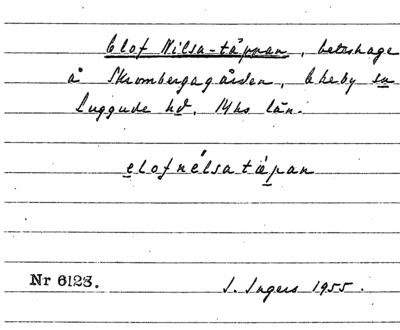 Olof Nilsa-täppan, beteshage
å Skrombergagården, Ekeby sn
Luggude hd. Mhs län.
elofnélsatäpan
Nr 6128. I. Ingers 1955.